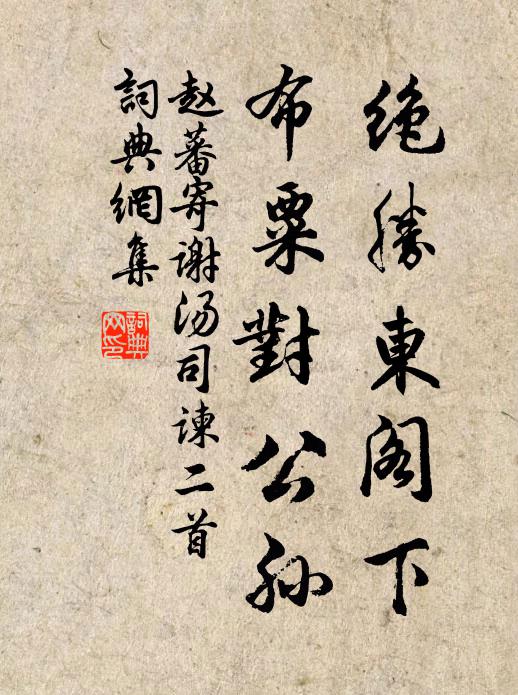 绝勝東阁下
布粟對公孙
赵蕃寄谢汤司谏二首
詞典網集
詞典網印